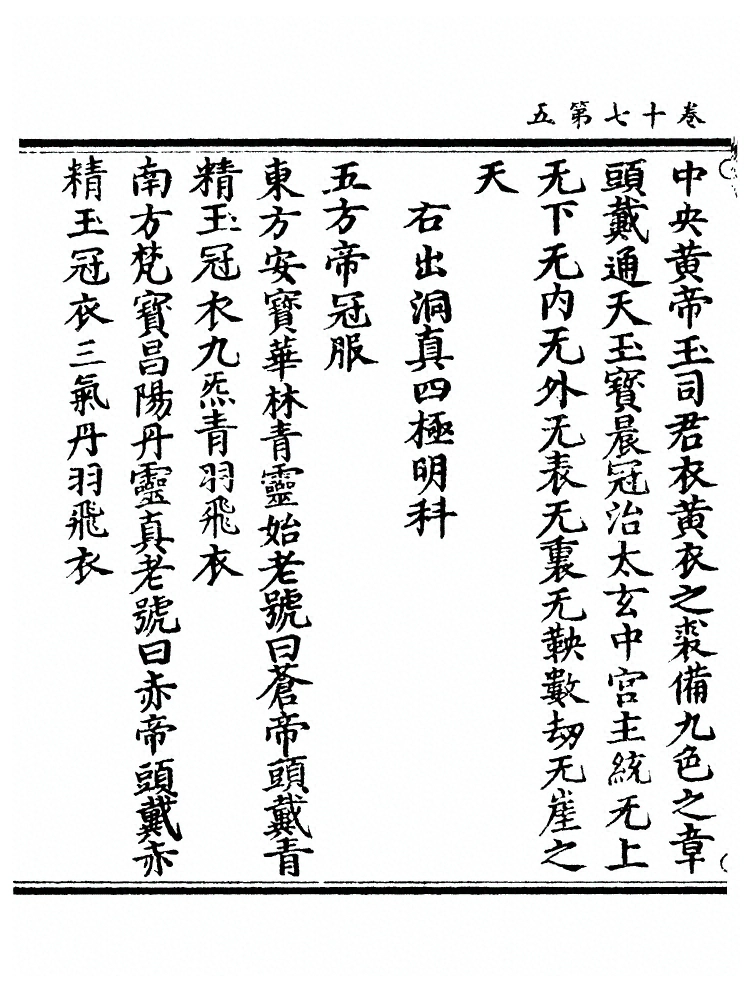 卷十七第五
中央黃帝玉司君衣黃衣之裘備九色之章
頭戴通天玉寶晨冠治太玄中宮主統无上
无下无內无外无表无裏无鞅數劫无崖之
天
右出洞真四極明科
五方帝冠服
東方安寶華林青靈始老號曰蒼帝頭戴青
精玉冠衣九炁青羽飛衣
南方梵寶昌陽丹靈真老號曰赤帝頭戴赤
精玉冠衣三氣丹羽飛衣